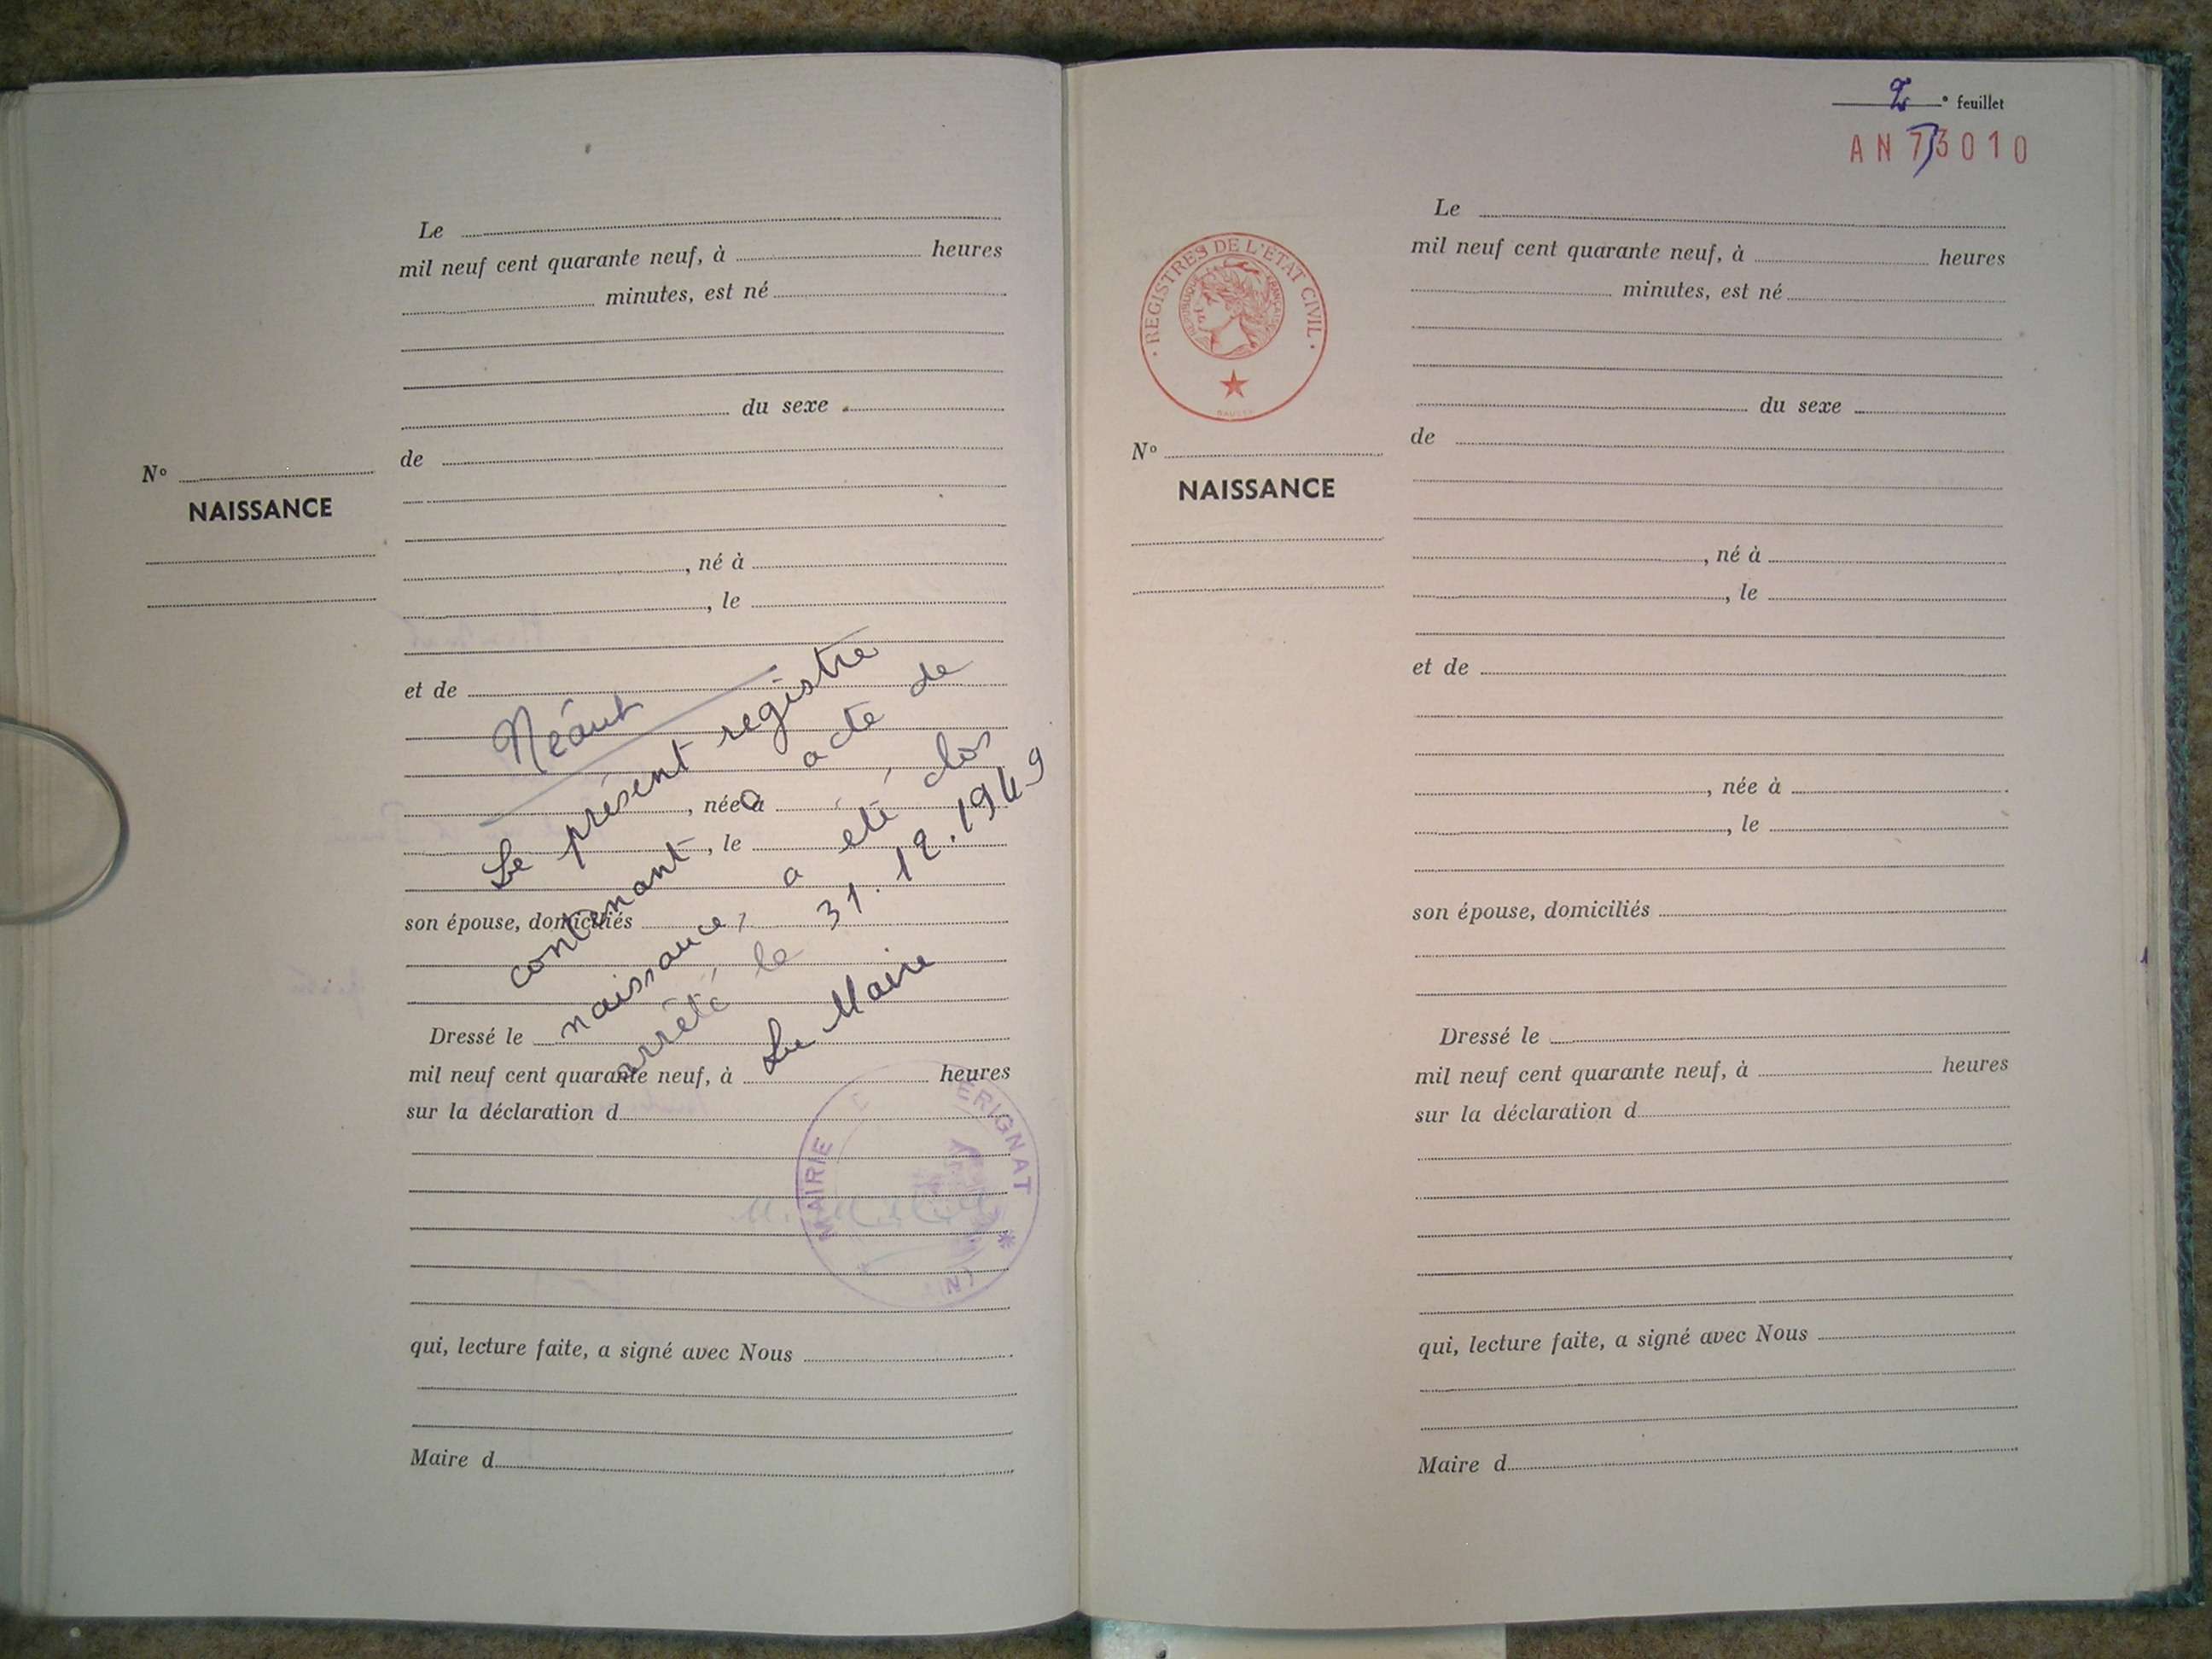 Le
mil neuf cent quarante neuf, à heures
minutes, est né
du sexe
de
N°
NAISSANCE
, né à
, le
et de
Néant
, née à
, le
son épouse, domiciliés
Le présent registre
contenant 0 acte de
naissance, a été clos
arrêté le 31.12.1949
Le Maire
Dressé le
mil neuf cent quarante neuf, à heures
sur la déclaration d
MAIRIE
ERIGNAT
qui, lecture faite, a signé avec Nous
Maire d
2 ° feuillet
AN 73010
REGISTRES DE L'ÉTAT CIVIL
RÉPUBLIQUE FRANÇAISE
Le
mil neuf cent quarante neuf, à heures
minutes, est né
du sexe
de
N°
NAISSANCE
, né à
, le
et de
, née à
, le
son épouse, domiciliés
Dressé le
mil neuf cent quarante neuf, à heures
sur la déclaration d
qui, lecture faite, a signé avec Nous
Maire d